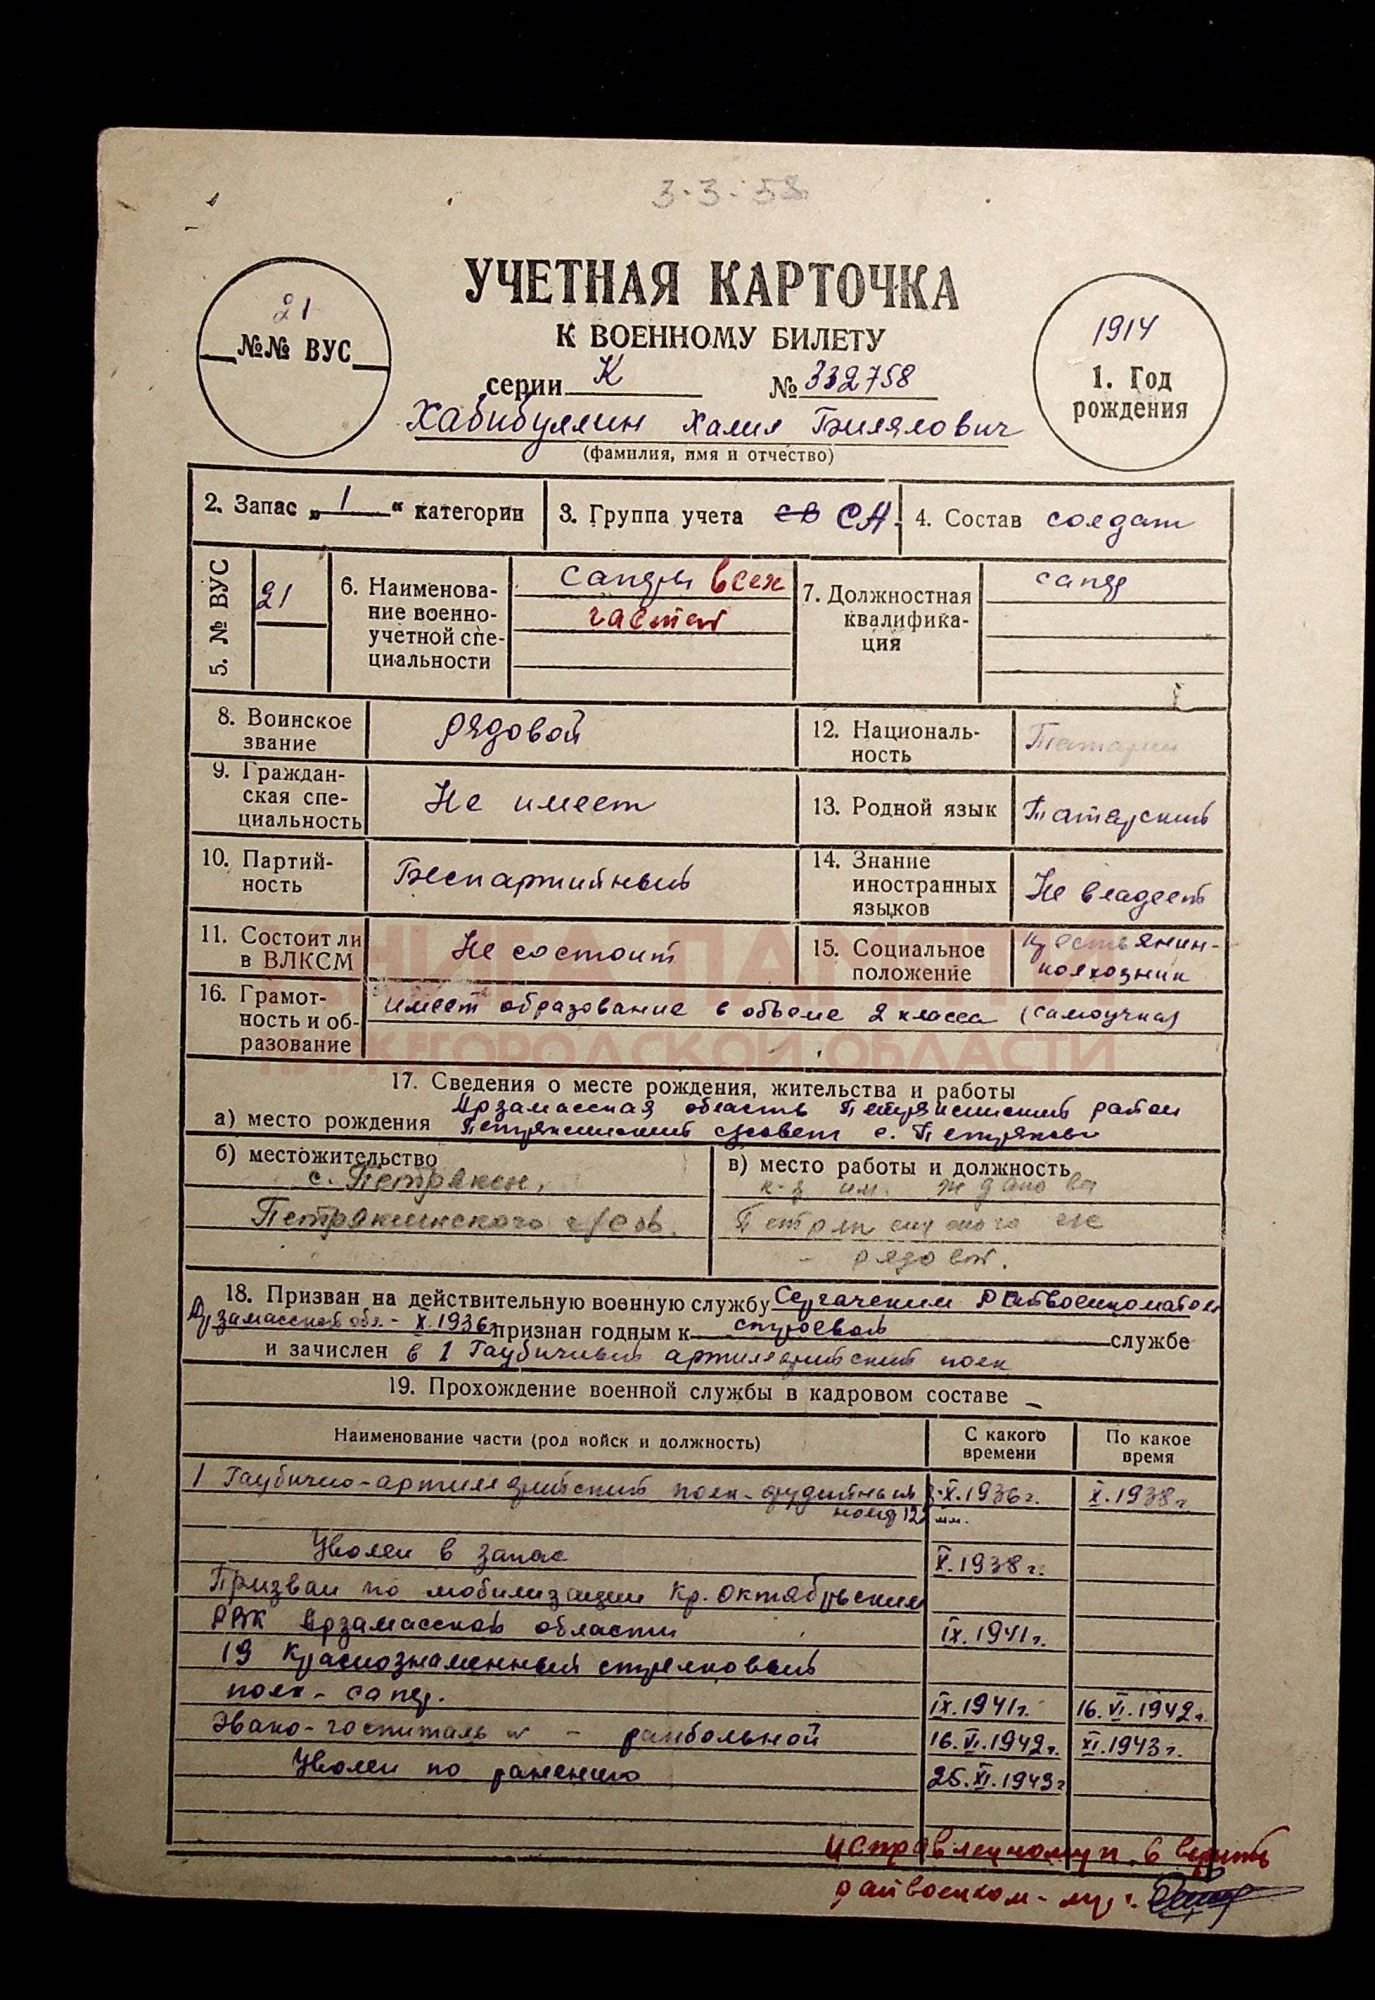 3-3-58
УЧЕТНАЯ КАРТОЧКА
К ВОЕННОМУ БИЛЕТУ
серии К № 332758
21
№№ ВУС
1914
1. Год
рождения
Хабибуллин Халил Билялович
(фамилия, имя и отчество)
2. Запас „1“ категории
3. Группа учета св СА.
4. Состав солдат
5. № ВУС
21
6. Наименова-
ние военно-
учетной спе-
циальности
саперы всех
частей
7. Должностная
квалифика-
ция
сапер
8. Воинское
звание
рядовой
12. Националь-
ность
Татарин
9. Граждан-
ская спе-
циальность
Не имеет
13. Родной язык
Татарский
10. Партий-
ность
Беспартийный
14. Знание
иностранных
языков
Не владеет
11. Состоит ли
в ВЛКСМ
Не состоит
15. Социальное
положение
Крестьянин-
колхозник
КНИГА ПАМЯТИ
НИЖЕГОРОДСКОЙ ОБЛАСТИ
16. Грамот-
ность и об-
разование
имеет образование в объеме 2 класса (самоучка)
17. Сведения о месте рождения, жительства и работы
а) место рождения Арзамасская область Петряксинский район
Петряксинский с/совет с. Петряксы
б) местожительство
с. Петряксы,
Петряксинского с/сов.
в) место работы и должность
к-з им. Жданова
Петряксинского с/с
- рядовой.
18. Призван на действительную военную службу Сергачским Райвоенкоматом
Арзамасской обл. - X.1936г. признан годным к строевой службе
и зачислен в 1 Гаубичный артиллерийский полк
19. Прохождение военной службы в кадровом составе
Наименование части (род войск и должность)
С какого
времени
По какое
время
1 Гаубично-артиллерийский полк-орудийный X.1936г. X.1938г.
номер 122 мм.
Уволен в запас X.1938г.
Призван по мобилизации Кр. Октябрьским
РВК Арзамасской области IX.1941г.
19 Краснознаменный стрелковый
полк - сапер. IX.1941г. 16.VI.1942г.
Эвако-госпиталь - ранбольной 16.VI.1942г. XI.1943г.
Уволен по ранению 25.XI.1943г
исправленному п. 6 верить
райвоенком -